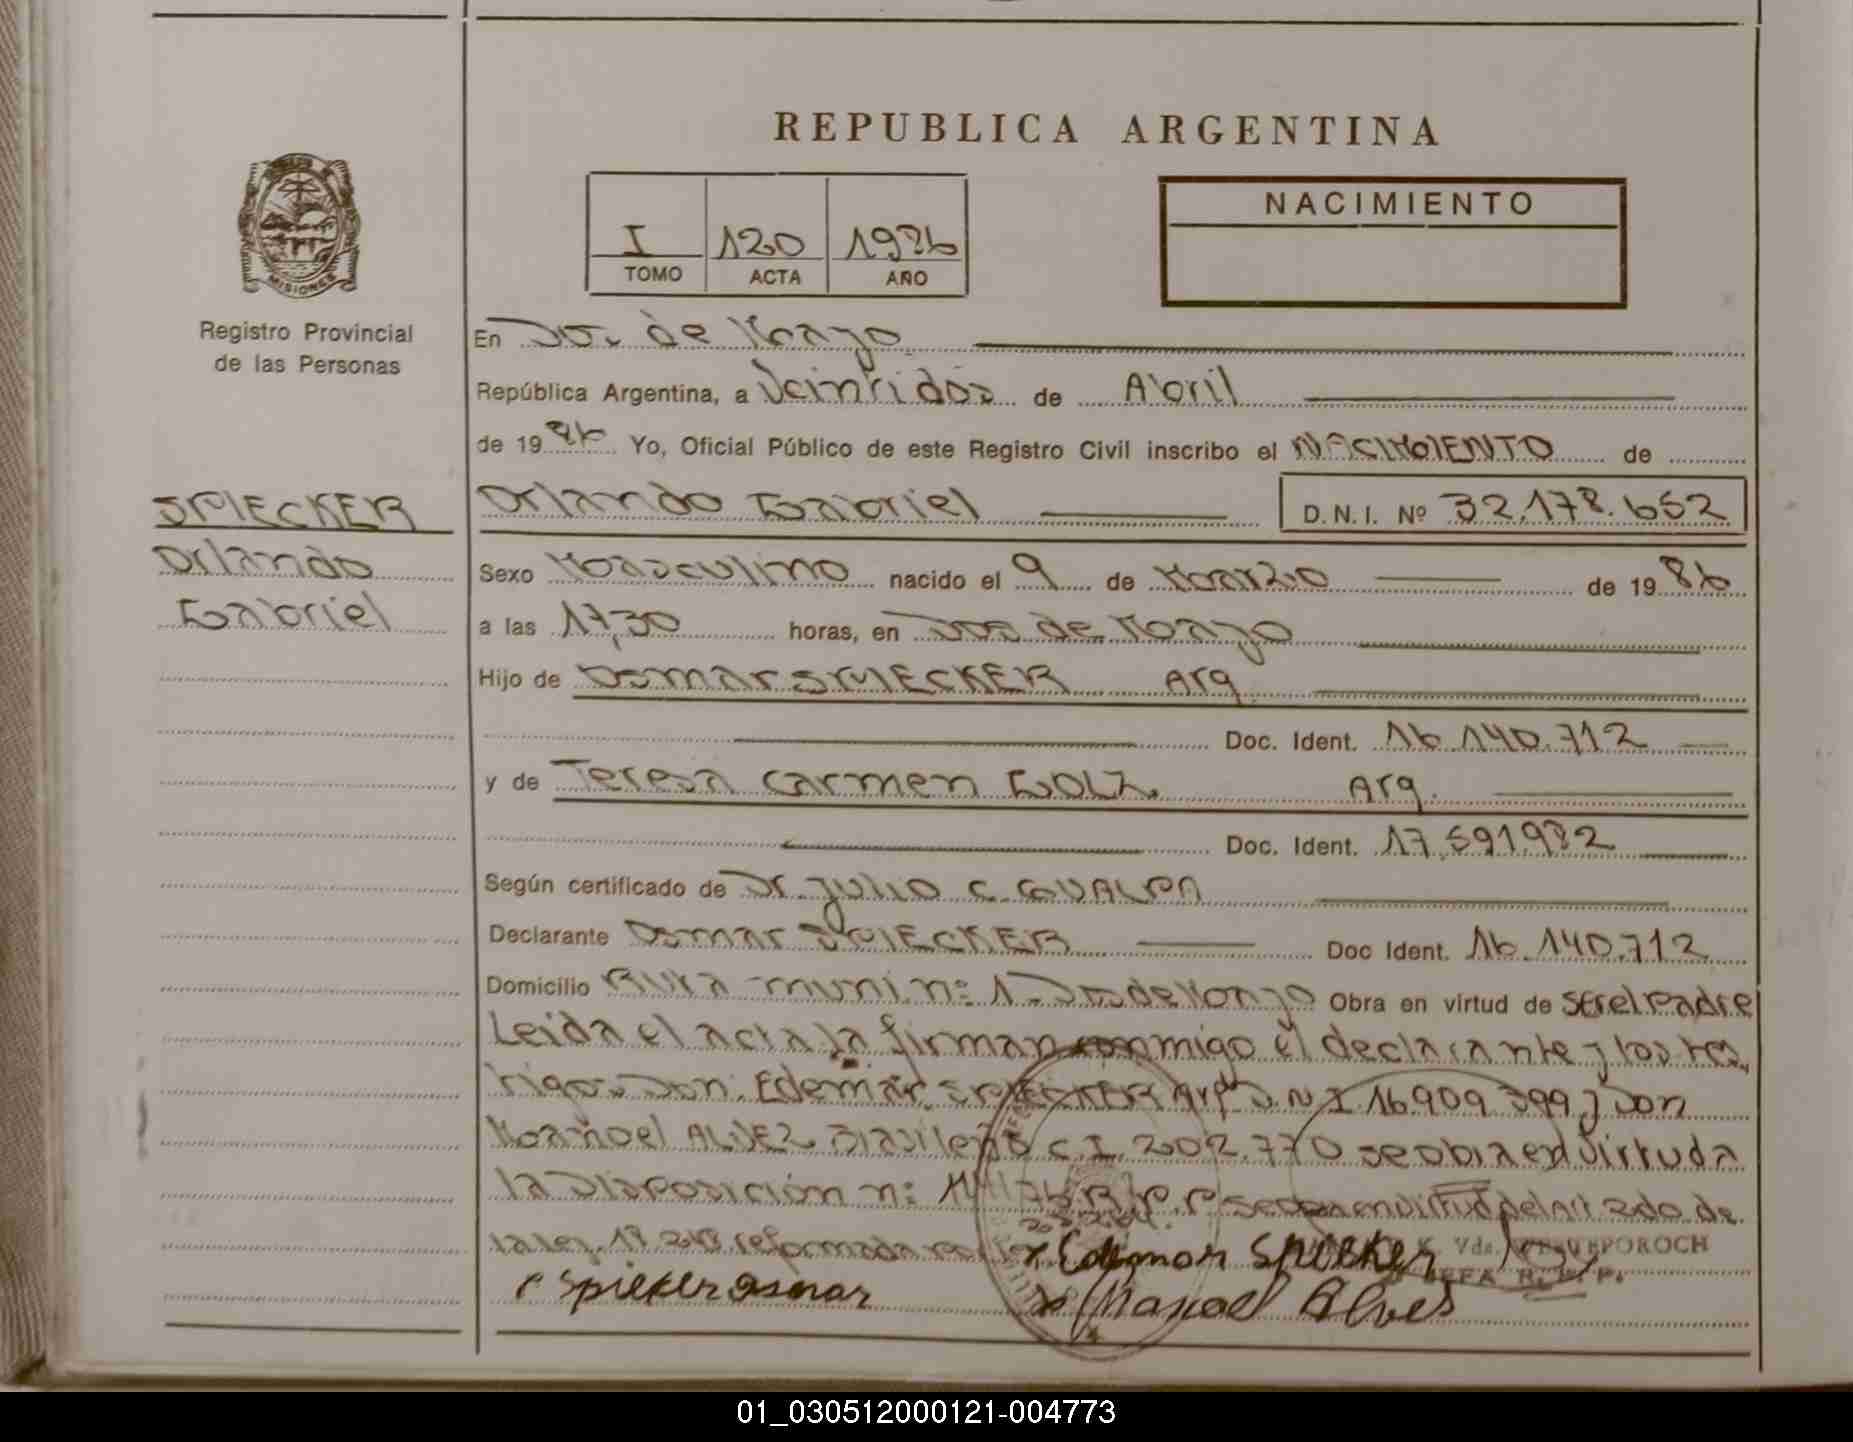 REPUBLICA ARGENTINA
NACIMIENTO
I 120 1986
TOMO ACTA AÑO
MISIONES
Registro Provincial
de las Personas
En Dos de Mayo
República Argentina, a Veintidós de Abril
de 1986 Yo, Oficial Público de este Registro Civil inscribo el NACIMIENTO de
SPIECKER
Orlando
Gabriel
Orlando Gabriel D.N.I. Nº 32.178.652
Sexo Masculino nacido el 9 de Marzo de 1986
a las 17,30 horas, en Dos de Mayo
Hijo de Osmar SPIECKER Arg.
Doc. Ident. 16.140.712
y de Teresa Carmen GOLZ. Arg.
Doc. Ident. 17.591.982
Según certificado de Dr. Julio C. GUALPA
Declarante Osmar SPIECKER Doc Ident. 16.140.712
Domicilio Ruta muni nº 1. Dos de Mayo Obra en virtud de ser el Padre
Leida el acta la firman conmigo el declarante y los tes
tigos Don. Edemar SPIECKER Argº D.N.I 16909.399 y Don
Manoel ALVEZ Brasileño C.I. 202.770 se obra en virtud a
la Disposición nº R.P.P.
la ley reformada
x Edemar Spiecker
Vda.
JEFA R.P.P.
Spiecker Osmar
x Manoel Alves
01_030512000121-004773